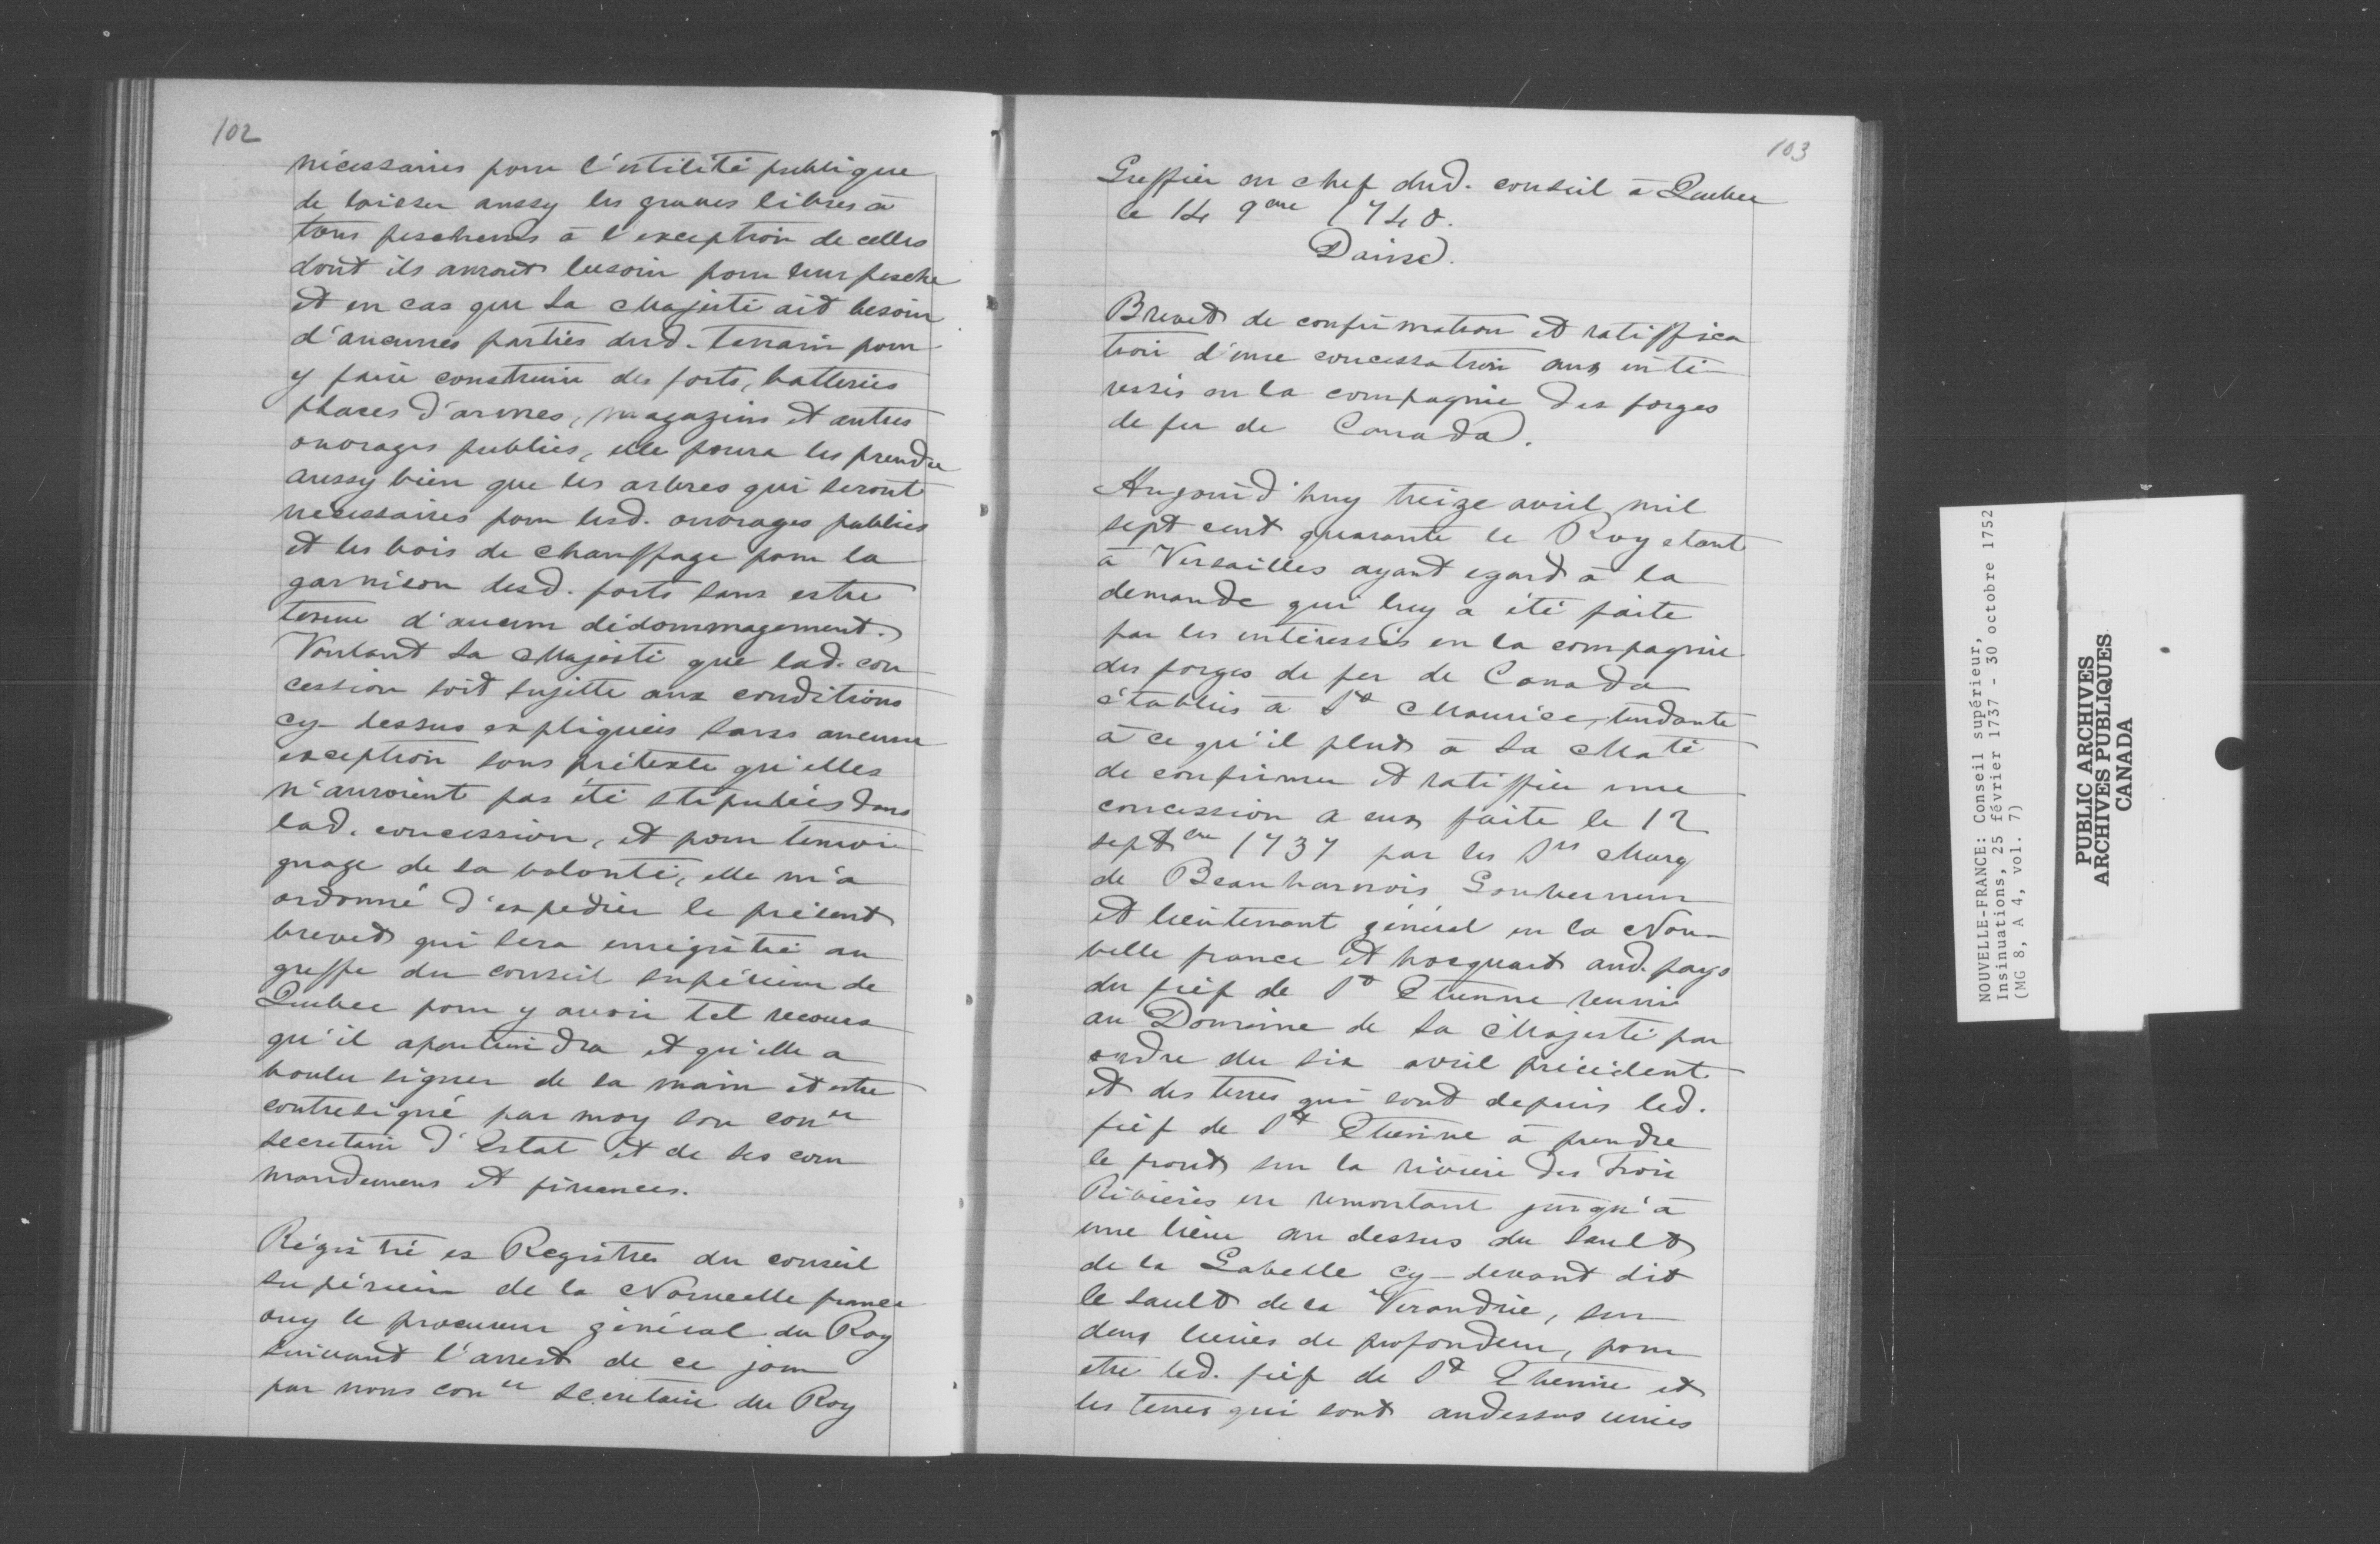 102
nécessaires pour l'utilité publique
de laisser aussy les graves libres à
tous pescheurs à l'exception de celles
dont ils auront besoin pour leur pesche
et en cas que Sa Majesté ait besoin
d'aucunes parties dud. terrain pour
y faire construire des forts, batteries
places d'armes, magazins et autres
ouvrages publics, elle poura les prendre
aussy bien que les arbres qui seront
necessaires pour lesd. ouvrages publics
et les bois de chauffage pour la
garnison desd. forts sans estre
tenue d'aucun dédommagement.
Voulant Sa Majesté que lad. con
cession soit sujette aux conditions
cy-dessus expliquées sans aucune
exception sous prétexte qu'elles
n'auroient pas été stipulées dans
lad. concession, et pour temoi
gnage de sa volonté, elle m'a
ordonné d'expedier le présent
brevet qui sera enregistré au
greffe du conseil supérieur de
Quebec pour y avoir tel recours
qu'il apartiendra et qu'elle a
voulu signer de sa main et estre
contresigné par moy son con er
secretaire d'Estat et de ses com
mandemens et finances.
Régistré es Registres du conseil
supérieur de la Nouvelle france
ouy le procureur général du Roy
suivant l'arrest de ce jour
par nous con er secrétaire du Roy
103
Greffier en chef dud. conseil à Quebec
le 14 9bre 1740.
Daine.
Brevet de confirmation et ratiffica
tion d'une concession aux inté-
ressés en la compagnie des forges
de fer de Canada.
Aujourd'huy treize avril mil
sept cent quarante le Roy etant
à Versailles ayant egard à la
demande qui luy a été faite
par les intéressés en la compagnie
des forges de fer de Canada
établies à St Maurice, tendante
à ce qu'il plut à Sa Maté
de confirmer et ratiffier une
concession a eux faite le 12
septbre 1737 par les Srs Marq
de Beauharnois Gouverneur
et lieutenant général en la Nou-
velle france et hocquart aud. pays
du fief de St Etienne reuni
au Domaine de Sa Majesté par
ordre du six avril précédent
et des terres qui sont depuis led.
fief de St Etienne à prendre
le front sur la rivière des Trois
Rivières en remontant jusqu'à
une lieue au dessus du Sault
de la Gabelle cy-devant dit
le Sault de la Verandrie, sur
deux lieues de profondeur, pour
etre led. fief de St Etienne et
les terres qui sont audessus unies
NOUVELLE-FRANCE: Conseil supérieur,
Insinuations, 25 février 1737 - 30 octobre 1752
(MG 8, A 4, vol. 7)
PUBLIC ARCHIVES
ARCHIVES PUBLIQUES
CANADA